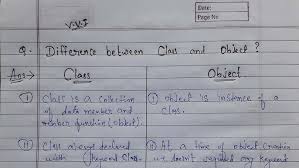 Date:
Page No
V.V.I
Q. Difference between Class and Object ?
Ans → Class Object
(I) Class is a collection of data member and member function (object).
(I) Object is instance of a class.
(II) Class always declared with (keyword Class
(II) At a time of object creation we doesn't required any keyword